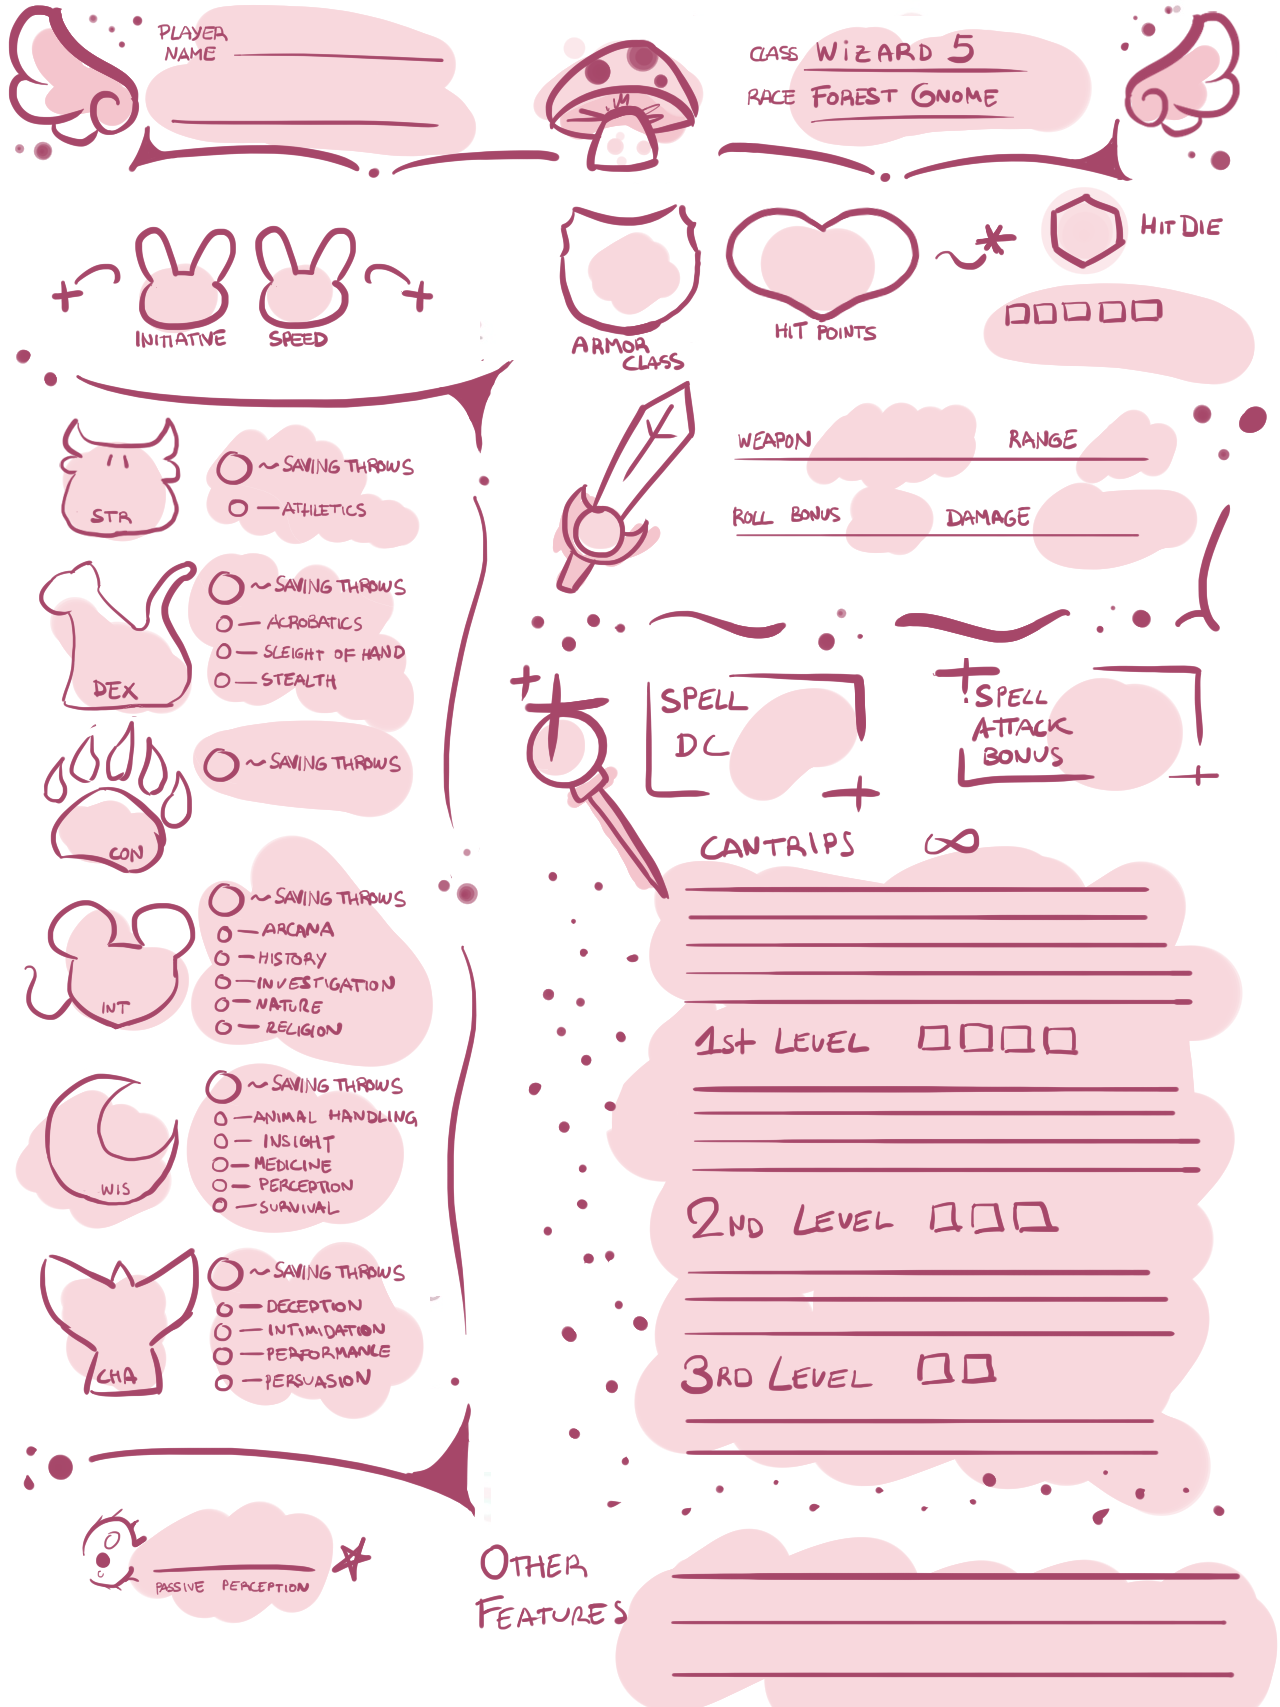 PLAYER
NAME
CLASS WIZARD 5
RACE FOREST GNOME
INITIATIVE
SPEED
ARMOR
CLASS
HIT POINTS
HIT DIE
STR
SAVING THROWS
ATHLETICS
DEX
SAVING THROWS
ACROBATICS
SLEIGHT OF HAND
STEALTH
CON
SAVING THROWS
INT
SAVING THROWS
ARCANA
HISTORY
INVESTIGATION
NATURE
RELIGION
WIS
SAVING THROWS
ANIMAL HANDLING
INSIGHT
MEDICINE
PERCEPTION
SURVIVAL
CHA
SAVING THROWS
DECEPTION
INTIMIDATION
PERFORMANCE
PERSUASION
PASSIVE PERCEPTION
WEAPON RANGE
ROLL BONUS DAMAGE
SPELL
DC
SPELL
ATTACK
BONUS
CANTRIPS ∞
1st LEVEL
2ND LEVEL
3RD LEVEL
OTHER
FEATURES